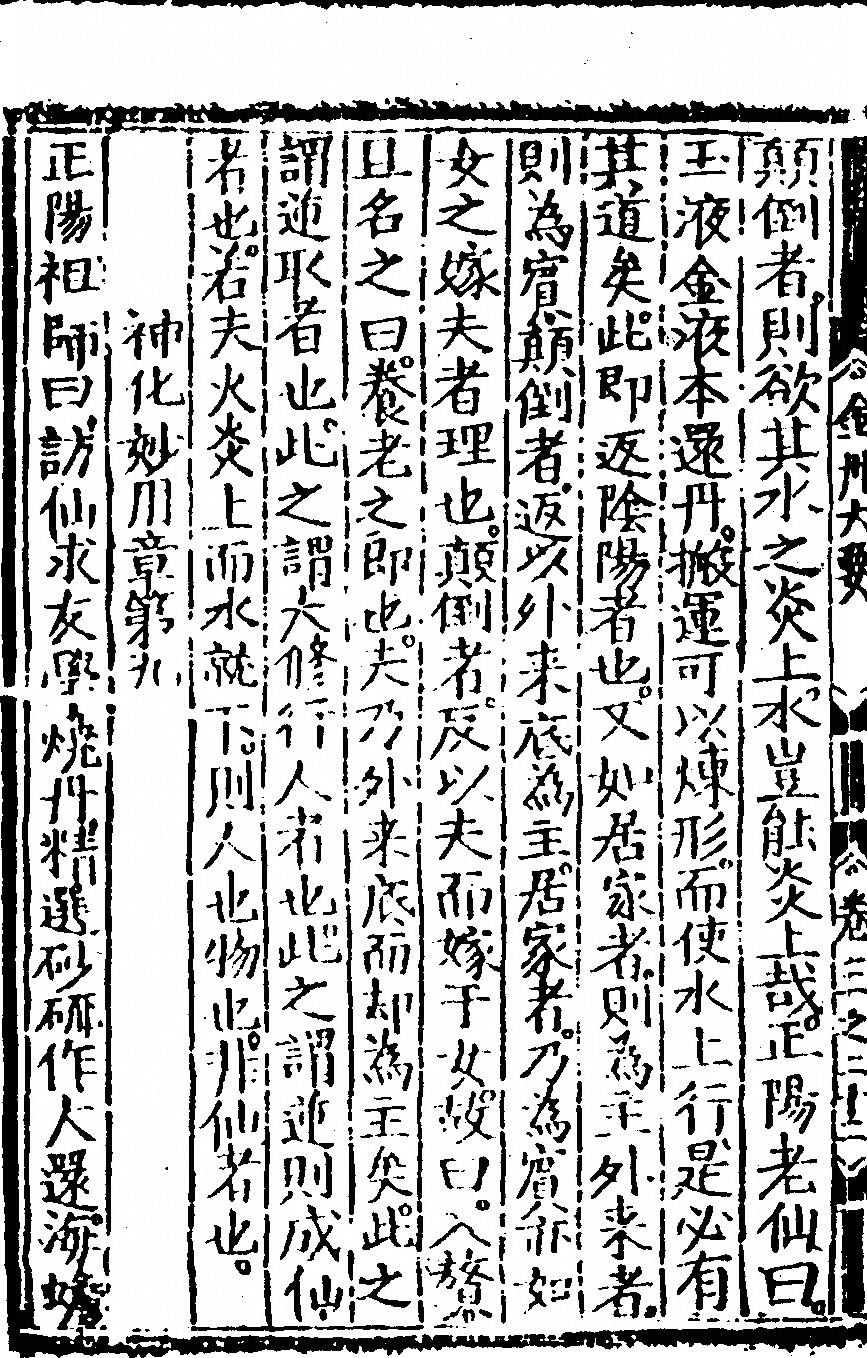 顛倒者則欲其水之炎上水豈能炎上哉正陽老仙曰
玉液金液本還丹搬運可以煉形而使水上行是必有
其道矣此即返陰陽者也又如居家者則為主外來者
則為賓顛倒者返以外来底為主居家者乃為賓亦如
女之嫁夫者理也顛倒者反以夫而嫁于女故曰入贅
且名之曰養老之郎也夫乃外来底而却為主矣此之
謂逆取者也此之謂大修行人者也此之謂逆則成仙
者也若夫火炎上而水就下則人也物也非仙者也
神化妙用章第九
正陽祖師曰訪仙求友學燒丹精選砂硏作大還海蟾
金丹大要 卷三之二 十二